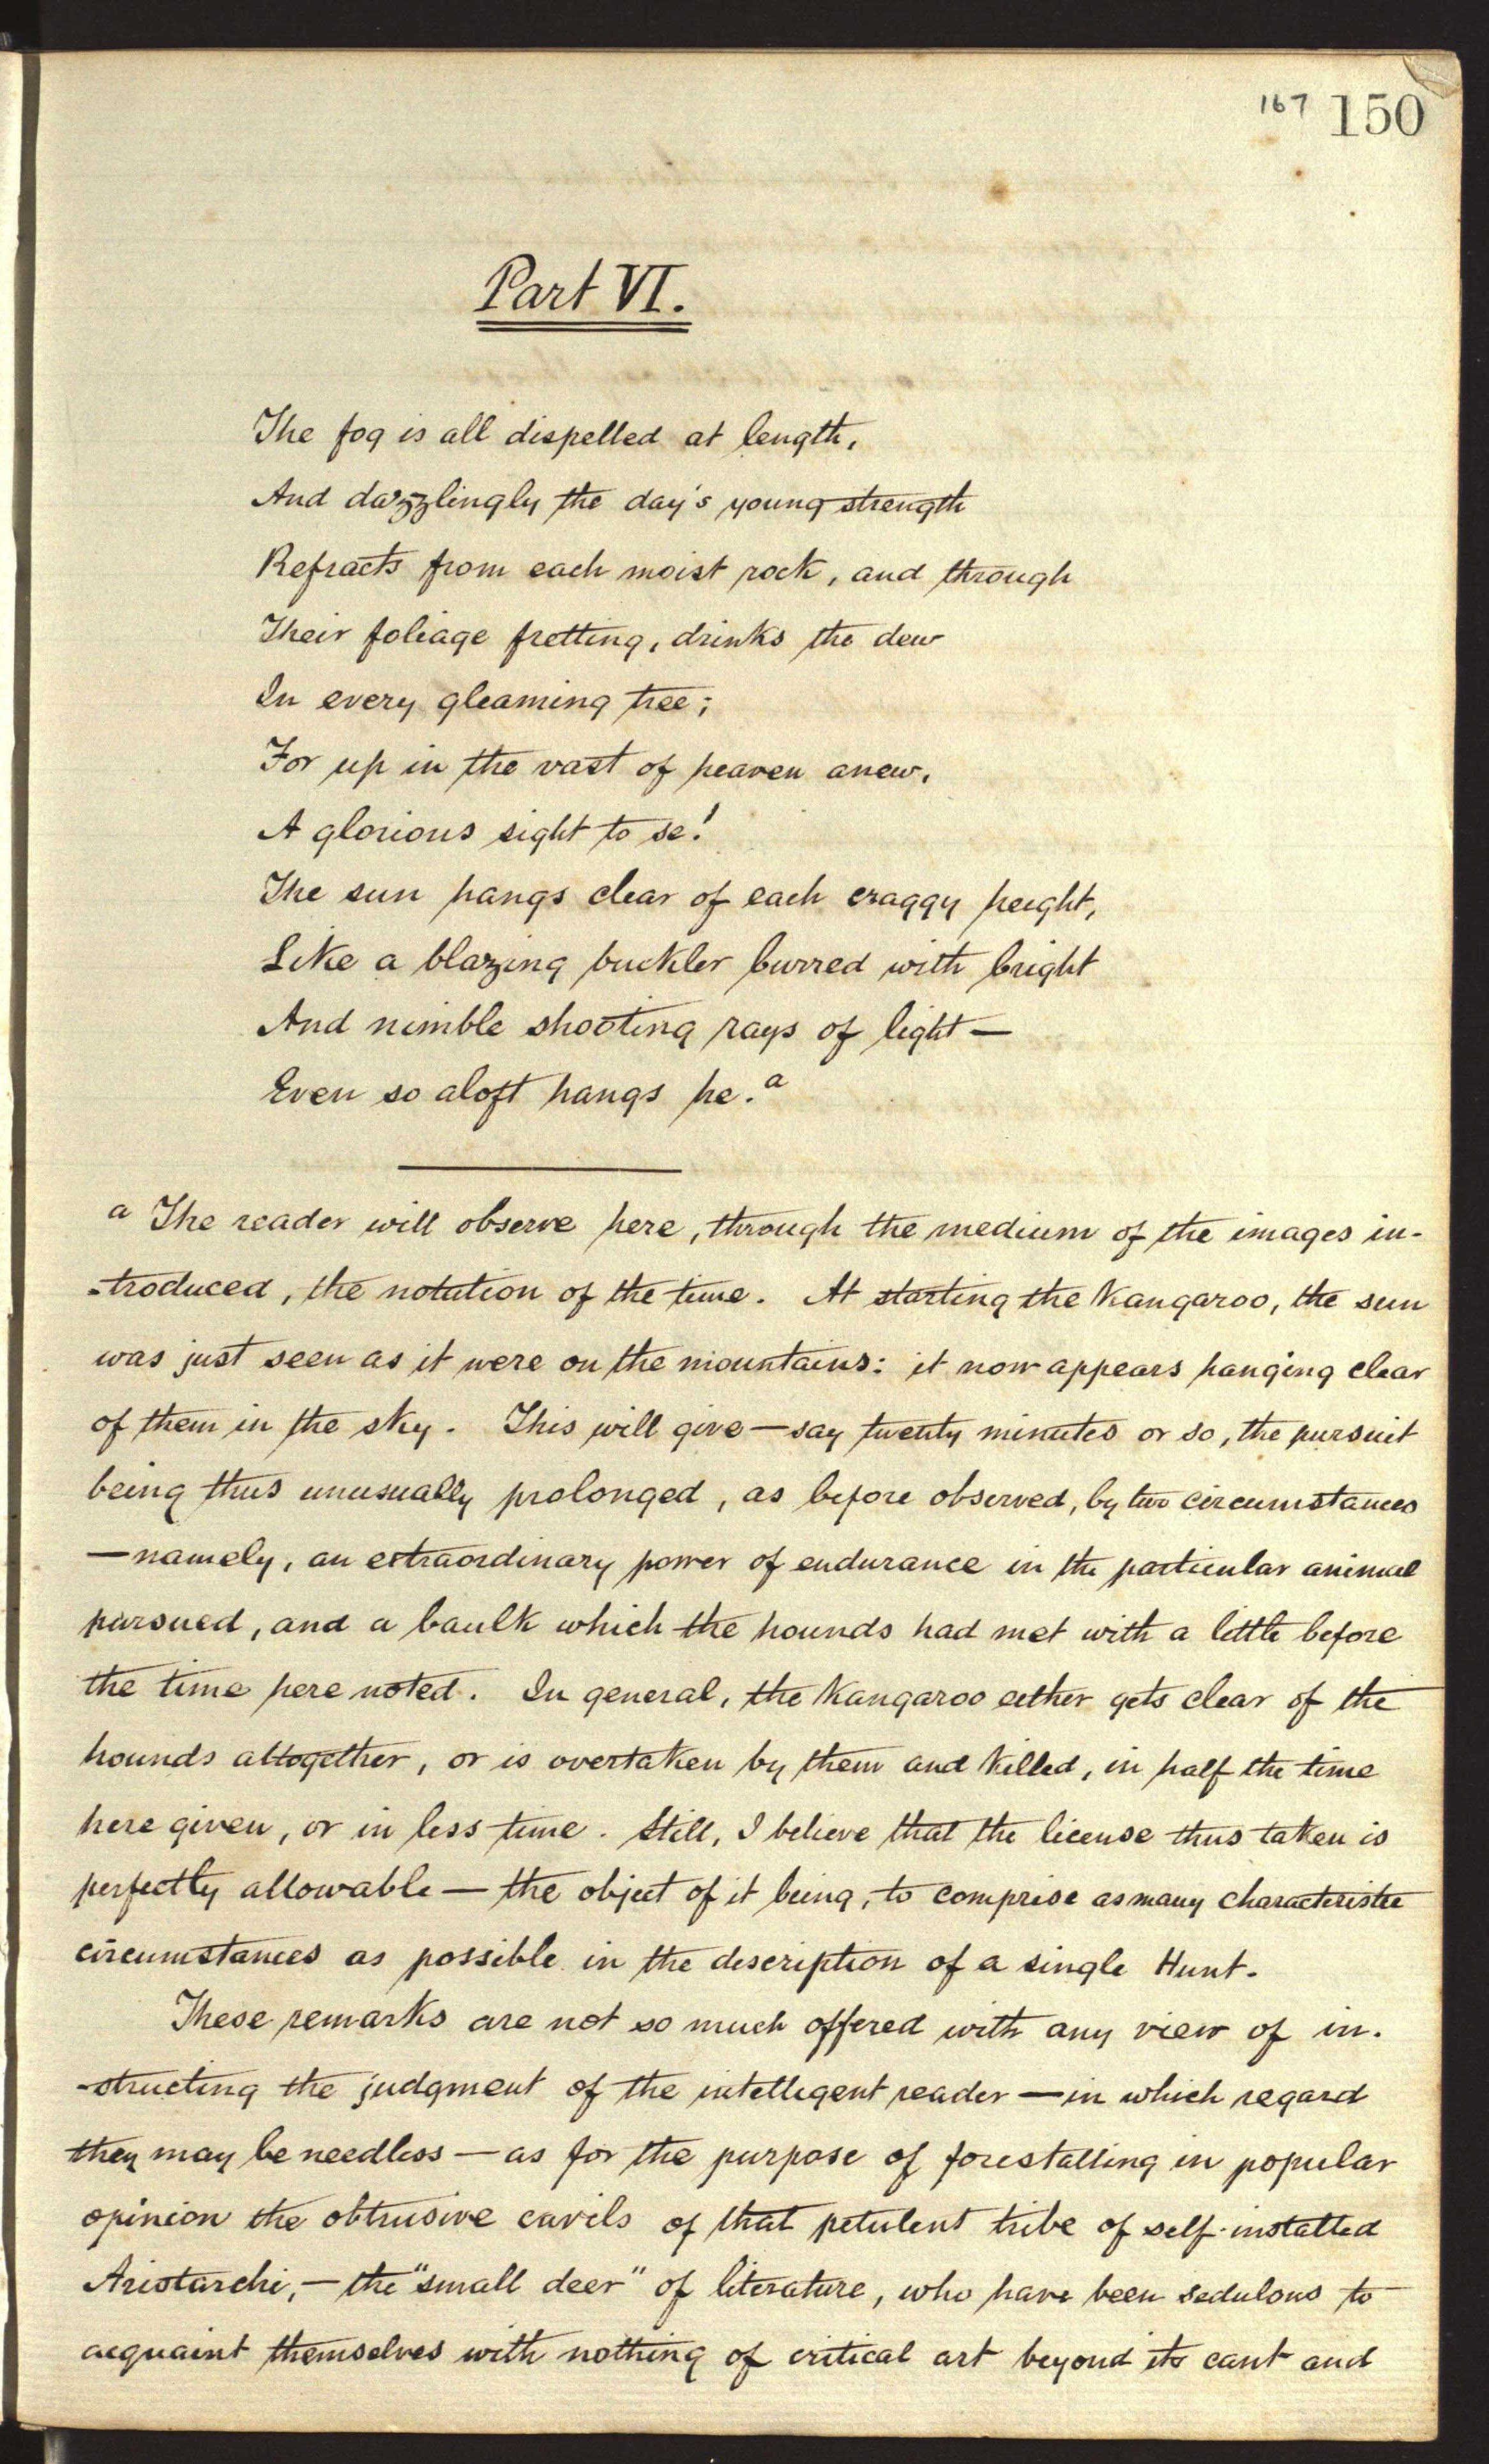 167 150
Part VI.
The fog is all dispelled at length,
And dazzlingly the day's young strength
Refracts from each moist rock, and through
Their foliage fretting, drinks the dew
In every gleaming tree;
For up in the vast of heaven anew,
A glorious sight to se!
The sun hangs clear of each craggy height,
Like a blazing buckler burred with bright
And nimble shooting rays of light—
Even so aloft hangs he.a
a The reader will observe here, through the medium of the images in-
-troduced, the notation of the time. At starting the Kangaroo, the sun
was just seen as it were on the mountains: it now appears hanging clear
of them in the sky. This will give—say twenty minutes or so, the pursuit
being thus unusually prolonged, as before observed, by two circumstances
—namely, an extraordinary power of endurance in the particular animal
pursued, and a baulk which the hounds had met with a little before
the time here noted. In general, the Kangaroo either gets clear of the
hounds altogether, or is overtaken by them and killed, in half the time
here given, or in less time. Still, I believe that the license thus taken is
perfectly allowable—the object of it being, to comprise as many characteristic
circumstances as possible in the description of a single Hunt.
These remarks are not so much offered with any view of in-
-structing the judgment of the intelligent reader—in which regard
they may be needless—as for the purpose of forestalling in popular
opinion the obtrusive cavils of that petulent tribe of self-installed
Aristarchi,—the "small deer" of literature, who have been sedulous to
acquaint themselves with nothing of critical art beyond its cant and